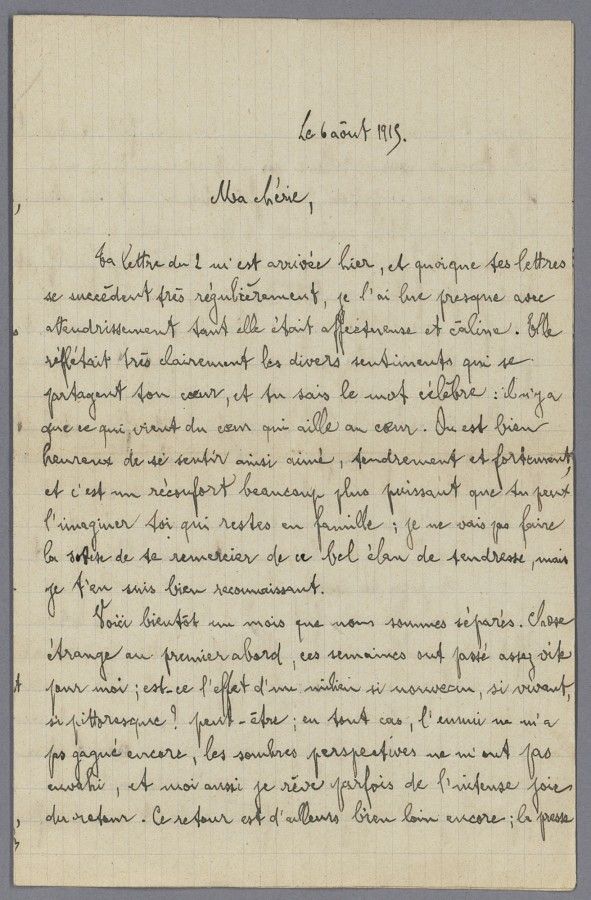 Le 6 août 1915.
Ma chérie,
Ta lettre du 2 m'est arrivée hier, et quoique tes lettres
se succèdent très régulièrement, je l'ai lue presque avec
attendrissement tant elle était affectueuse et câline. Elle
réflétait très clairement les divers sentiments qui se
partagent ton cœur, et tu sais le mot célèbre : il n'y a
que ce qui vient du cœur qui aille au cœur. On est bien
heureux de se sentir ainsi aimé, tendrement et fortement,
et c'est un réconfort beaucoup plus puissant que tu peux
l'imaginer toi qui restes en famille ; je ne vais pas faire
la sottise de te remercier de ce bel élan de tendresse, mais
je t'en suis bien reconnaissant.
Voici bientôt un mois que nous sommes séparés. Chose
étrange au premier abord, ces semaines ont passé assez vite
pour moi ; est-ce l'effet d'un milieu si nouveau, si vivant,
si pittoresque ? peut-être ; en tout cas, l'ennui ne m'a
pas gagné encore, les sombres perspectives ne m'ont pas
envahi, et moi aussi je rêve parfois de l'intense joie
du retour. Ce retour est d'ailleurs bien loin encore ; la presse